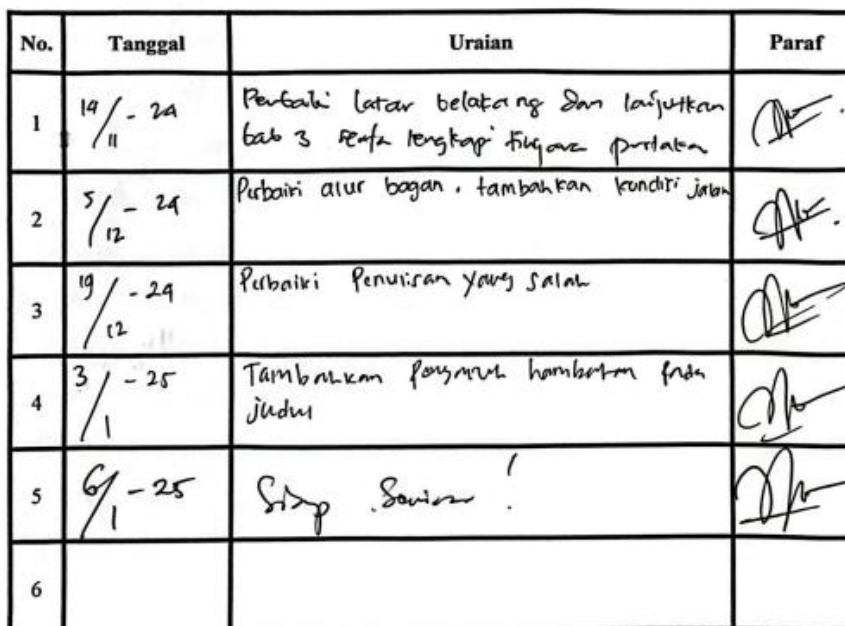 No. Tanggal Uraian Paraf
1 19/11 - 24 Perbaiki latar belakang dan lanjutkan
bab 3 serta lengkapi tinjauan pustaka
2 5/12 - 24 Perbaiki alur bagan, tambahkan kondisi jalan
3 19/12 - 24 Perbaiki Penulisan yang salah
4 3/1 - 25 Tambahkan pengaruh hambatan pada
judul
5 6/1 - 25 Siap !
6